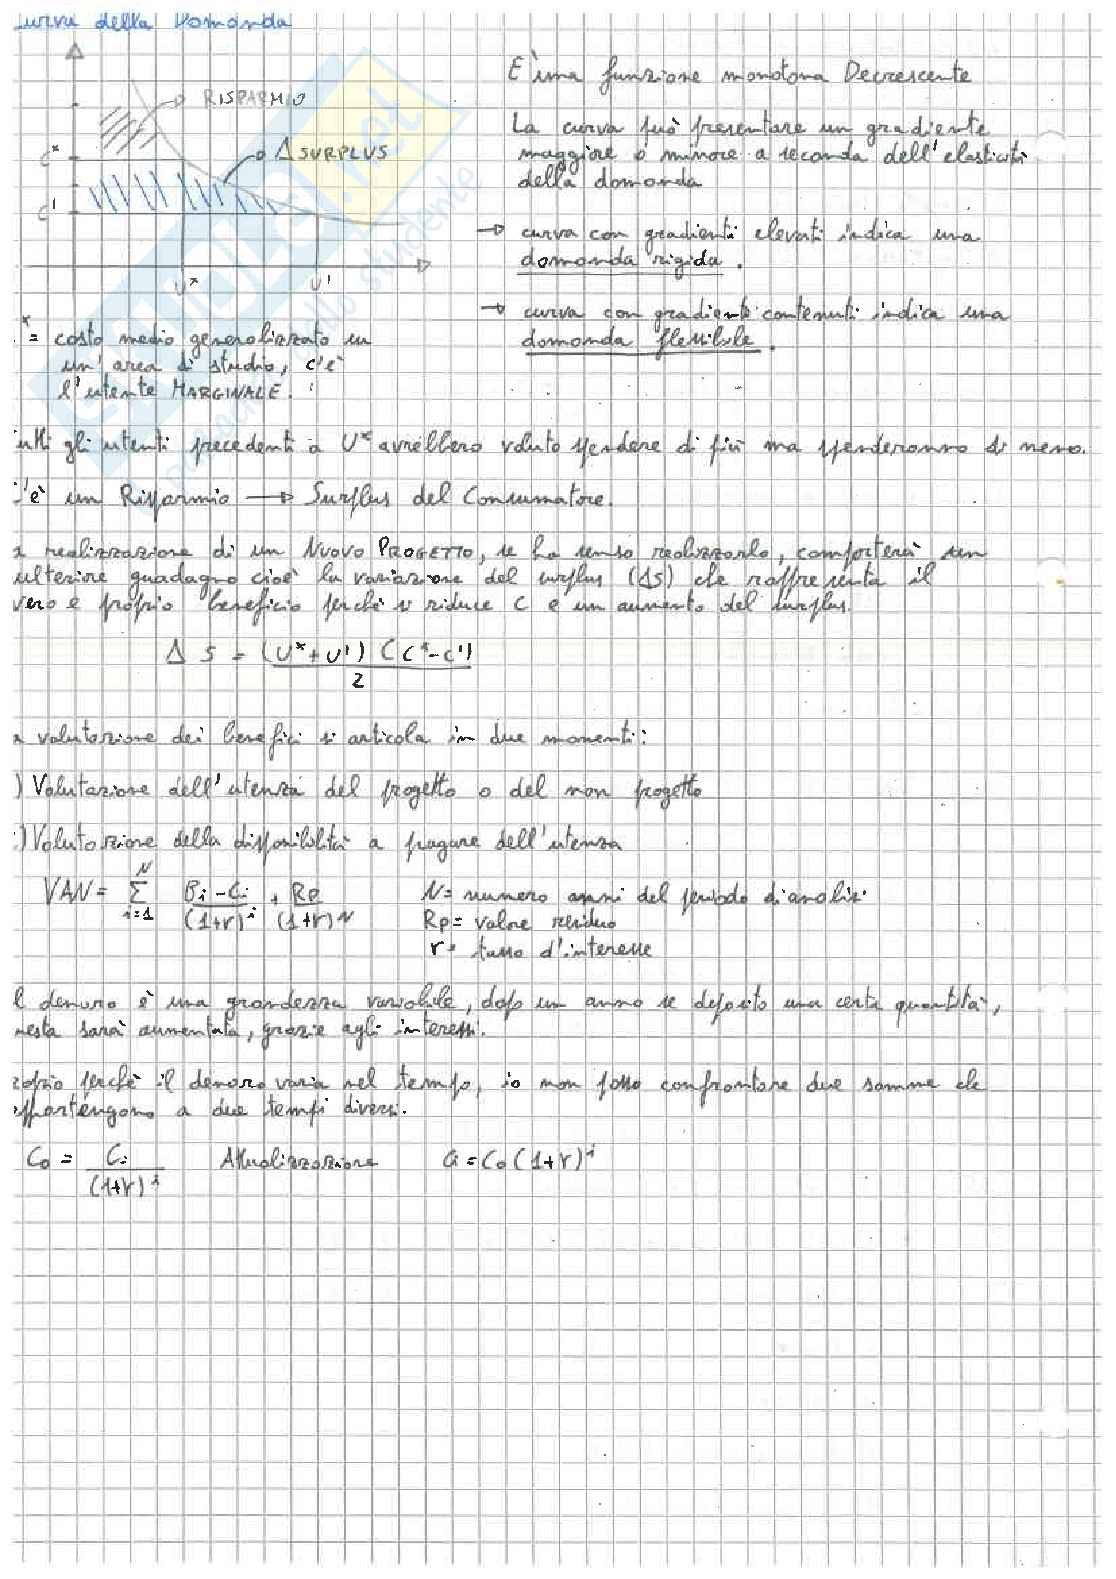 Curva della Domanda
È una funzione monotona Decrescente
RISPARMIO
La curva può presentare un gradiente
maggiore o minore a seconda dell'elasticità
della domanda
C*
Δ SURPLUS
C'
→ curva con gradienti elevati indica una
domanda rigida.
U* U'
→ curva con gradienti contenuti indica una
domanda flessibile.
* = costo medio generalizzato in
un'area di studio, c'è
l'utente MARGINALE.
utti gli utenti precedenti a U* avrebbero voluto spendere di più ma spenderanno di meno.
'è un Risparmio → Surplus del Consumatore.
a realizzazione di un NUOVO PROGETTO, se ha senso realizzarlo, comporterà un
ulteriore guadagno cioè la variazione del surplus (ΔS) che rappresenta il
vero e proprio beneficio perchè si riduce C e un aumento del surplus.
Δ S = (U*+U') (C*-C') / 2
a valutazione dei benefici si articola in due momenti:
) Valutazione dell'utenza del progetto o del non progetto
) Valutazione della disponibilità a pagare dell'utenza
VAN = Σ i=1 N (Bi - Ci) / (1+r)^i + Rp / (1+r)^N
N = numero anni del periodo di analisi
Rp = valore residuo
r = tasso d'interesse
l denaro è una grandezza variabile, dopo un anno se deposito una certa quantità,
uesta sarà aumentata, grazie agli interessi.
roprio perchè il denaro varia nel tempo, io non posso confrontare due somme che
appartengono a due tempi diversi.
C0 = Ci / (1+r)^i Attualizzazione Ci = C0 (1+r)^i